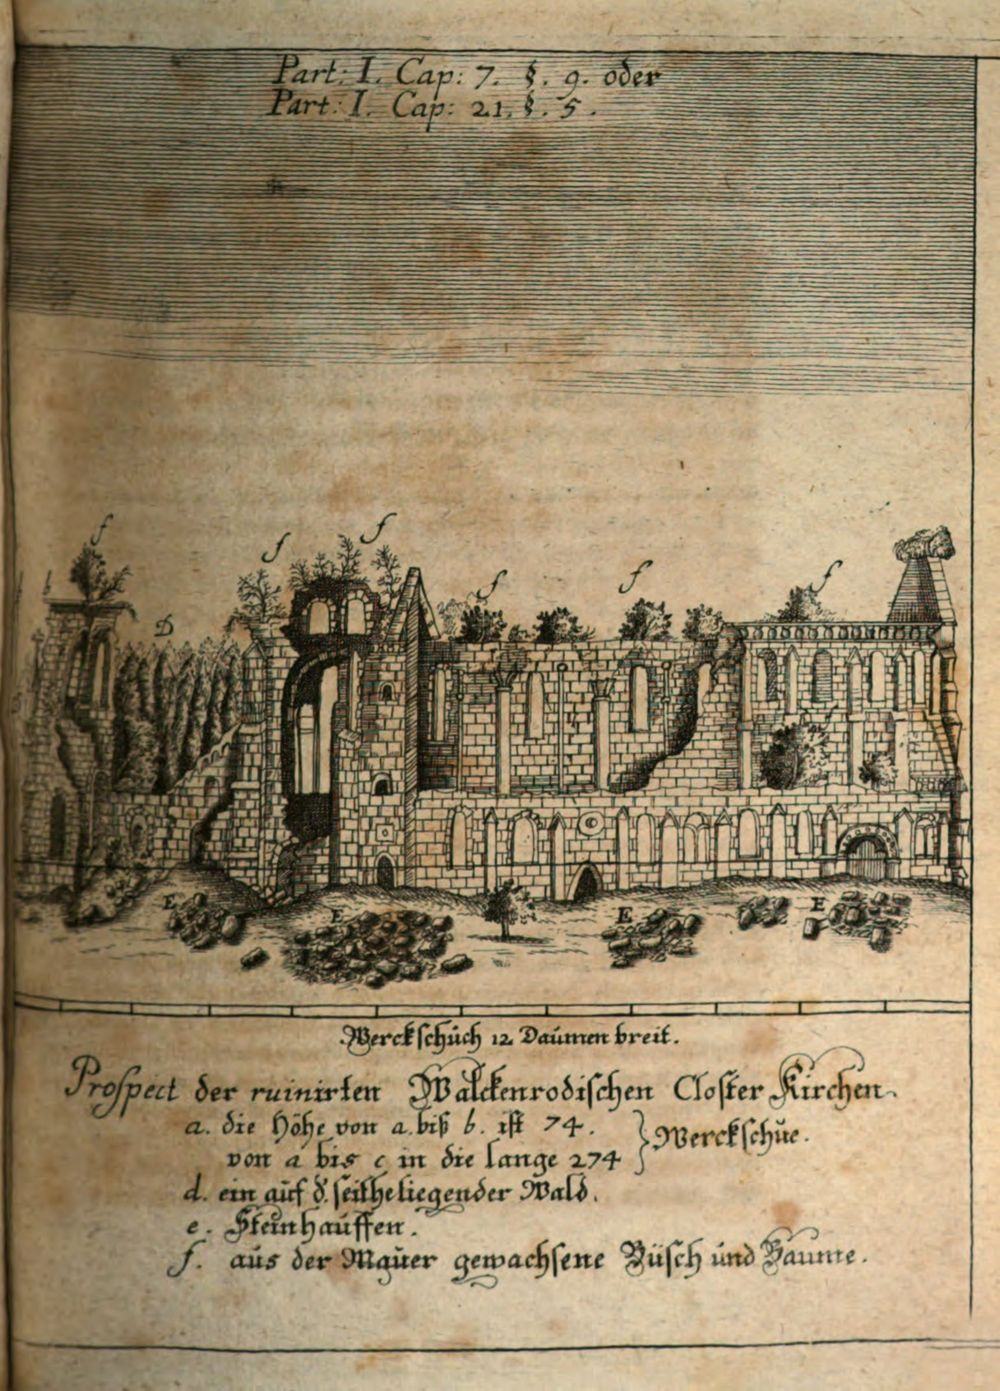 Part: I. Cap: 7. §. 9. oder
Part: I. Cap: 21. §. 5.
f f f f f f
b
D
E E E E
Werckschüch 12 Daümen breit.
Prospect der ruinirten Walckenrodischen Closter Kirchen.
a. die Höhe von a. biß b. ist 74.
von a bis c in die lange 274 } Werckschüe.
d. ein aüf d. seithe liegender Wald.
e. Steinhaüffen.
f. aüs der Maüer gewachsene Büsch ünd Baüme.